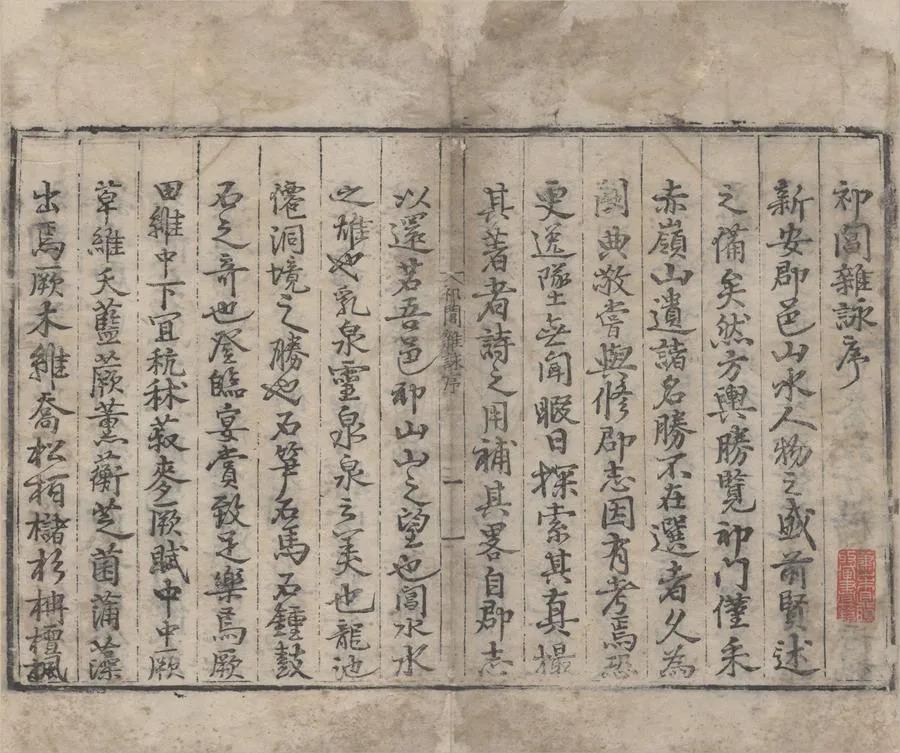 祁閶雜詠序
新安郡邑山水人物之盛前賢述
之備矣然方輿勝覽祁門僅采
赤嶺山遺諸名勝不在選者久為
闕典敬嘗與修郡志因有考焉恐
更逸墜無聞暇日探索其真撮
其著者詩之用補其畧自郡志
祁閶雜詠序 一
以還若吾邑祁山山之望也閶水水
之雄也乳泉靈泉泉之美也龍池
僊洞境之勝也石筍石馬石鍾鼓
石之奇也登臨宴賞致足樂焉厥
田維中下宜秔秫菽麥厥賦中中厥
草維夭藍蕨薰蘅芝菌蒲藻
出焉厥木維喬松栢櫧杉枏檀楓